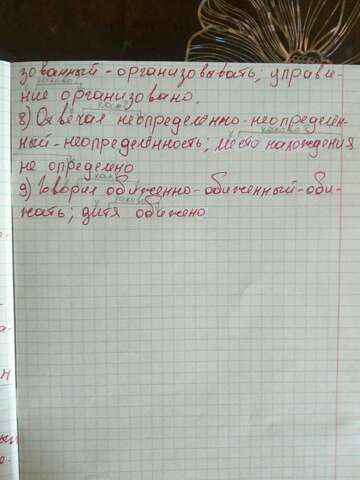 зованный - организовывать; управле-
каково
ние организовано.
как
8) Отвечая неопределённо-неопределен-
каково?
ный-неопределённость; место нахождения
не определено
как
9) Говоря обиженно-обиженный-оби-
каково
жать; дитя обижено
а-
н
ый
е-